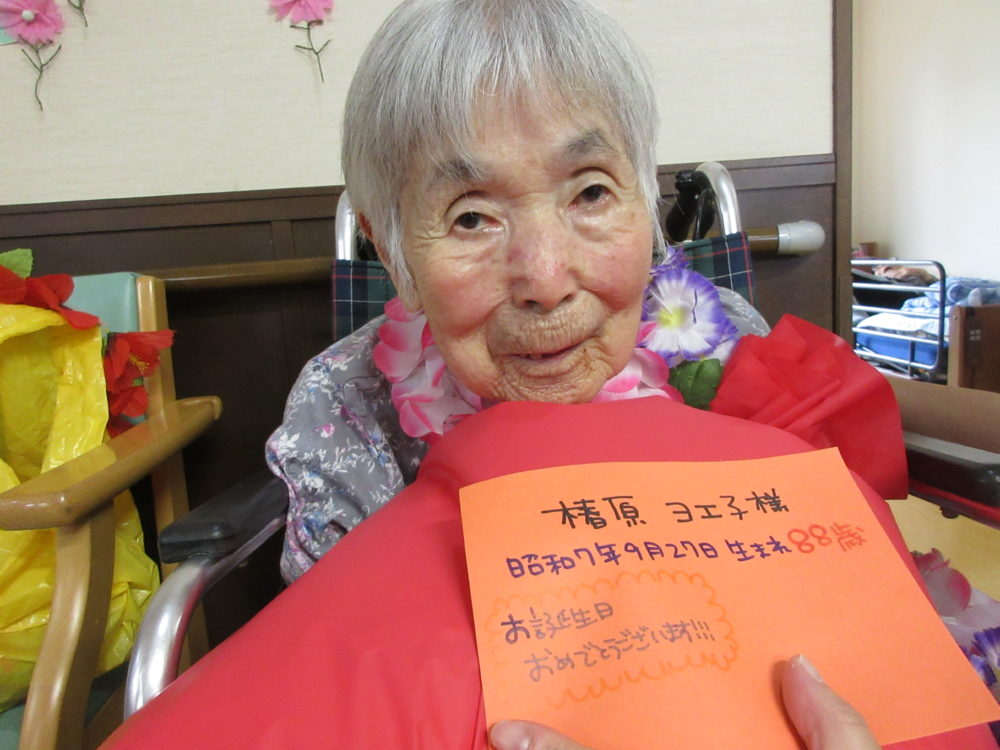 椿原 ヨエ子様
昭和7年9月27日 生まれ 88歳
お誕生日
おめでとうございます!!!